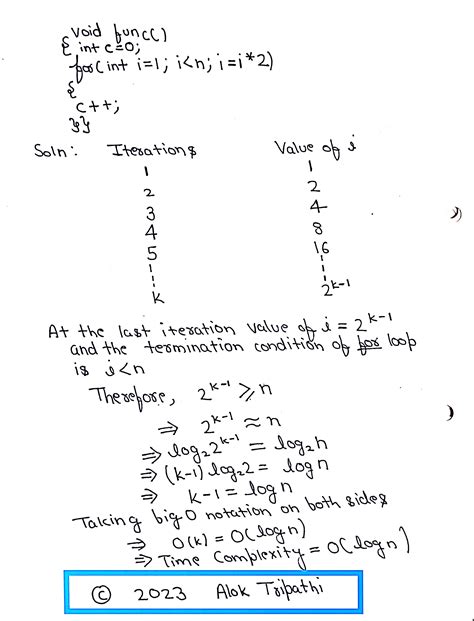 void func()
{ int c=0;
for(int i=1; i<n; i=i*2)
{
c++;
}}
Soln: Iterations Value of i
1 1
2 2
3 4
4 8
5 16
k 2^k-1
At the last iteration value of i = 2^k-1
and the termination condition of for loop
is i<n
Therefore, 2^k-1 ≥ n
⇒ 2^k-1 ≈ n
⇒ log₂2^k-1 = log₂n
⇒ (k-1) log₂2 = logn
⇒ k-1 = logn
Taking big O notation on both sides
⇒ O(k) = O(logn)
⇒ Time Complexity = O(logn)
© 2023 Alok Tripathi